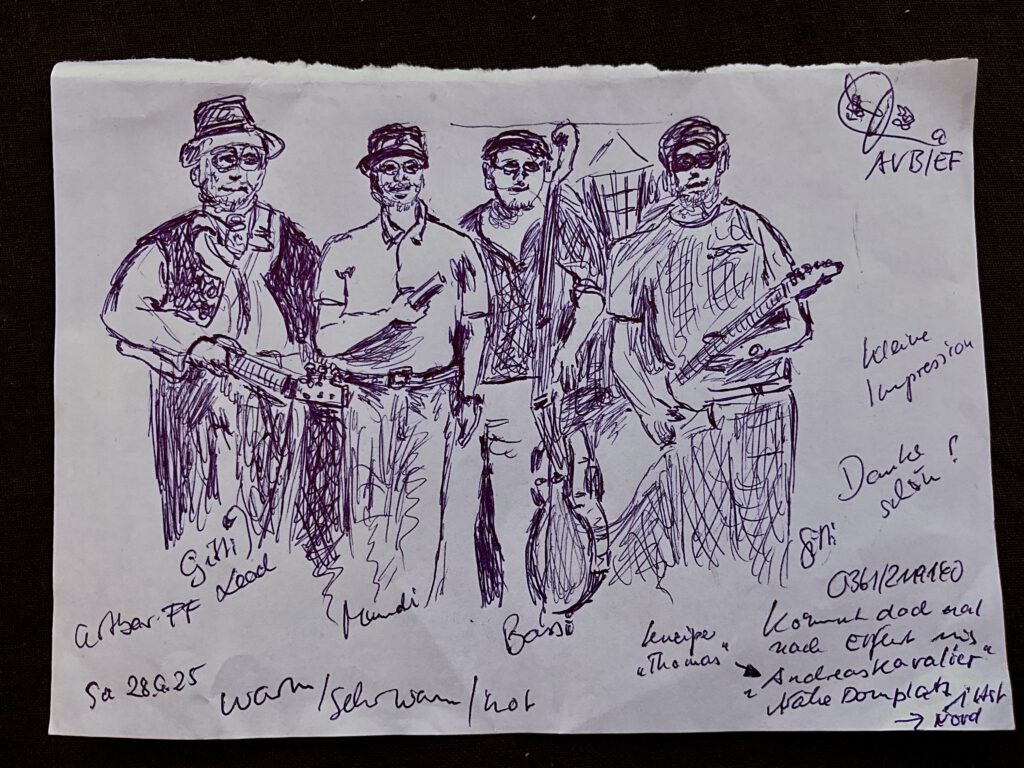 AVB/EF
Kleine
Impression
Danke
schön!
Gitti
Lead
Mundi
Bassi
Gitti
Sa 28.6.25
warm/sehr warm/hot
Kneipe
"Thomas"
Kommt doch mal
nach Erfurt ins
"Andreaskavalier"
Nähe Domplatz
→ Nord